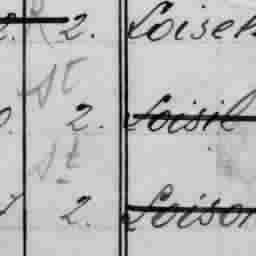 2. Loisel
St
2. Loisil
St
2. Loison